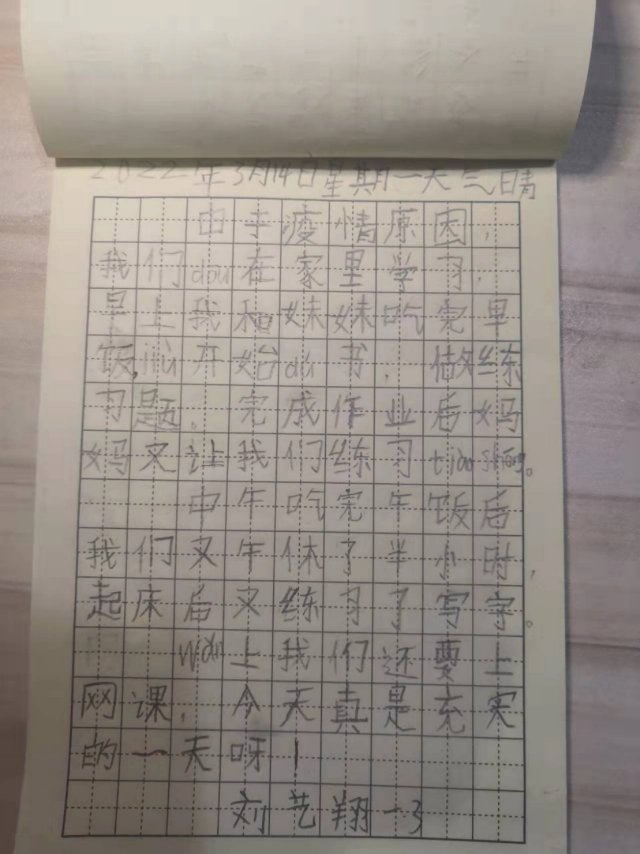 2022年3月14日星期一天气晴
由于疫情原因,
我们dōu在家里学习,
早上我和妹妹吃完早
饭,jiù开始dú书,做练
习题。完成作业后妈
妈又让我们练习tiào shéng。
中午吃完午饭后
我们又午休了半小时,
起床后又练习了写字。
wǎn上我们还要上
网课,今天真是充实
的一天呀!
刘艺翔一3